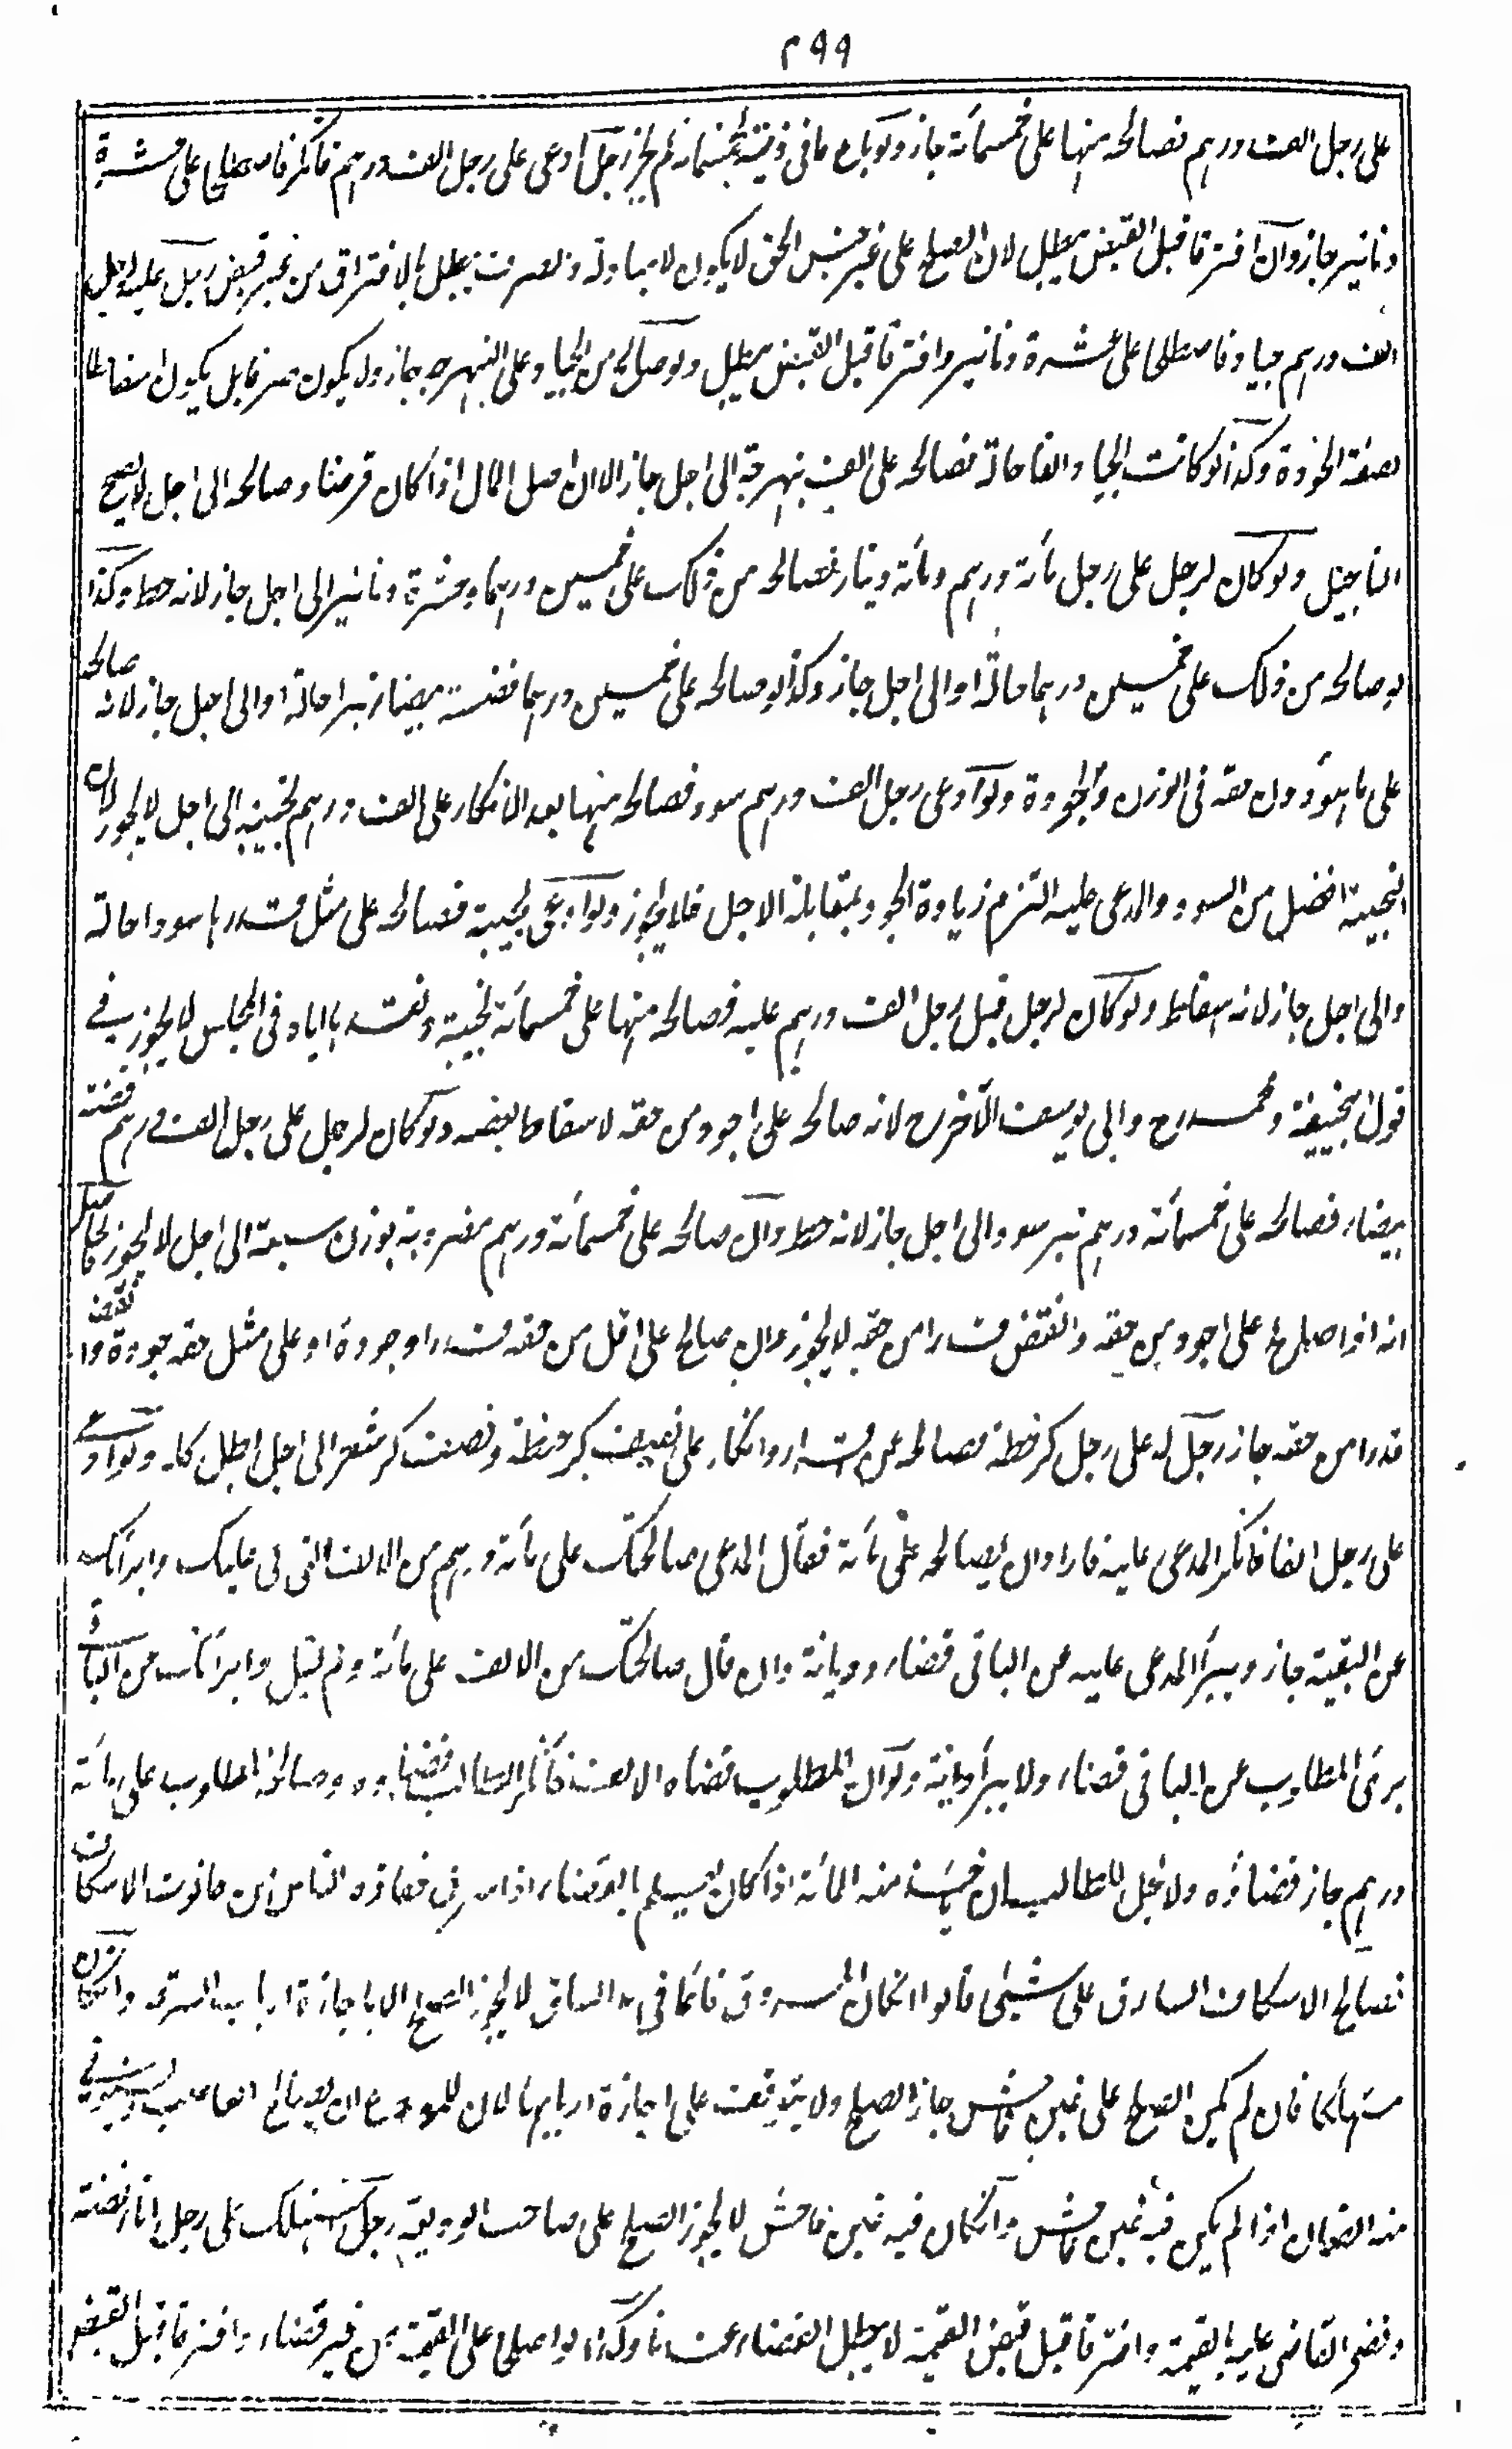 ۲۹۹
على رجل الف درهم فصالحه منها على خمسمائة جاز ولو باع ما في ذمته بخمسمائة لم يجز رجل ادعى على رجل الف درهم فانكر فاصطلحا على عشرة
دنانير جاز وان افترقا قبل القبض يبطل لان الصلح على غير جنس الحق لا يكون الا مبادلة والصرف يبطل بالافتراق من غير قبض رجل عليه لرجل
الف درهم جياد فاصطلحا على عشرة دنانير وافترقا قبل القبض يبطل ولو صالح من الجياد على النبهرجه جاز ولا يكون صرفا بل يكون اسقاطا
لصفة الجودة وكذا لو كانت الجياد الفا حالة فصالحه على الف نبهرجة الى اجل جاز الا ان اصل المال اذا كان قرضا وصالحه الى اجل لا يصح
التاجيل ولو كان لرجل على رجل مائة درهم ومائة دينار فصالحه من ذلك على خمسين درهما وعشرة دنانير الى اجل جاز لانه حط وكذا
لو صالحه من ذلك على خمسين درهما حالة او الى اجل جاز وكذا لو صالحه على خمسين درهما فضة بيضاء تبرا حالة او الى اجل جاز لانه صالحه
على ما هو دون حقه في الوزن والجودة ولو ادعى على رجل الف درهم سود فصالحه منها بعد الانكار على الف درهم نجيبة الى اجل لا يجوز لان
النجيبة افضل من السود والمدعى عليه التزم زيادة الجودة بمقابلة الاجل فلا يجوز ولو ادعى نجيبة فصالحه على مثل قدرها سودا حالة
والى اجل جاز لانه اسقاط ولو كان لرجل قبل رجل الف درهم عليه فصالحه منها على خمسمائة نجيبة ونقدها اياه في المجلس لا يجوز في
قول ابيحنيفة ومحمد رح وابي يوسف الآخر رح لانه صالحه على اجود من حقه لاسقاط بعضه ولو كان لرجل على رجل الف درهم فضة
بيضاء فصالحه على خمسمائة درهم تبر سود الى اجل جاز لانه حط وان صالحه على خمسمائة درهم مضروبة بوزن سبعة الى اجل لا يجوز فالحاصل
انه اذا صالح على اجود من حقه وانقص قدرا من حقه لا يجوز وان صالح على اقل من حقه قدرا وجودة او على مثل حقه جودة وانقص
قدرا من حقه جاز رجل له على رجل كر حنطة فصالحه عن اقرار وانكار على نصف كر حنطة ونصف كر شعير الى اجل بطل كله ولو ادعى
على رجل الفا فانكر المدعى عليه فاراد ان يصالحه على مائة فقال المدعي صالحتك على مائة درهم من الالف التي لي عليك وابرأتك
عن البقية جاز ويبرأ المدعى عليه عن الباقي قضاء وديانة وان قال صالحتك من الالف على مائة ولم يقل وابرأتك من الباقي
برئ المطلوب عن الباقي قضاء ولا يبرأ ديانة ولو ان المطلوب قضاه الالف فانكر الطالب قضاءه وصالحه المطلوب على مائة
درهم جاز قضاؤه ولا يحل للطالب ان ياخذ منه المائة اذا كان يعلم بالقضاء اذا سرق خفاف الناس من حانوت الاسكاف
فصالح الاسكاف السارق على شيئ قالوا انكان المسروق قائما في يد السارق لا يجوز الصلح الا باجازة ارباب السرقة وانكان
مستهلكا فان لم يكن الصلح على غبن فاحش جاز الصلح ولا يتوقف على اجازة اربابها لان للمودع ان يصالح الغاصب
منه الضمان اذا لم يكن فيه غبن فاحش وانكان فيه غبن فاحش لا يجوز الصلح على صاحب الوديعة رجل استهلك على رجل اناء فضة
وقضى القاضي عليه بالقيمة وافترقا قبل قبض القيمة لا يبطل القضاء عندنا وكذا لو اصطلحا على القيمة من غير قضاء وافترقا قبل القبض